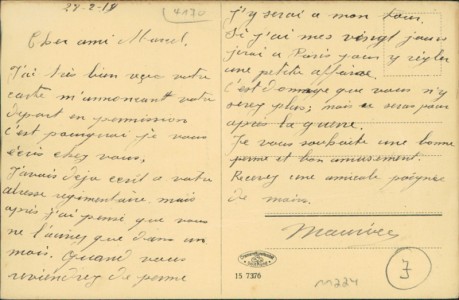 27-2-18
4190
Cher ami Marcel.
J'ai très bien reçu votre
carte m'annoncant votre
départ en permission
c'est pourquoi je vous
écris chez vous,
J'avais deja ecrit a votre
adresse regimentaire mais
après j'ai pensé que vous
ne l'auriez que dans un
mois. Quand vous
reviendrez de perme
j'y serai a mon tour.
Si j'ai mes vingt jours
jirai a Paris pour y régler
une petite affaire.
c'est domage que vous n'y
serez plus; mais ce sera pour
après la guerre.
Je vous souhaite une bonne
perme et bon amusement.
Recevez une amicale poignée
de main.
Maurice
15 7376